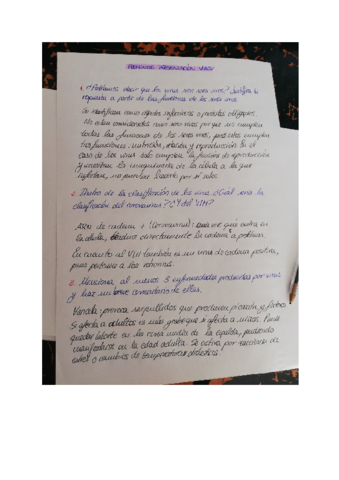 1. ¿Podríamos decir que los virus son seres vivos? Justifica tu
respuesta a partir de las funciones de los seres vivos.
Se identifican como agentes infecciosos y parásitos obligados.
No están considerados como seres vivos porque no cumplen
todas las funciones de los seres vivos, pues estos cumplen
tres funciones: nutrición, relación y reproducción. En el
caso de los virus solo cumplen la función de reproducción
y necesitan la maquinaria de la célula a la que
infectan, no pueden hacerlo por sí solos.
2. Dentro de la clasificación de los virus ¿Cuál sería la
clasificación del coronavirus? ¿Y del VIH?
ARN de cadena + (Coronavirus): una vez que entra en
la célula, directamente la cadena a proteína.
En cuanto al VIH también es un virus de cadena positiva,
pero pertenece a los retrovirus.
3. Menciona al menos 3 enfermedades producidas por virus
y haz un breve comentario de ellas.
Varicela: provoca sarpullidos que producen picazón y fiebre.
Si afecta a adultos es más grave que si afecta a niños. Puede
quedar latente en la médula espinal, pudiendo
manifestarse en la edad adulta. Se activa por
estrés o cambios de temperaturas drásticos.